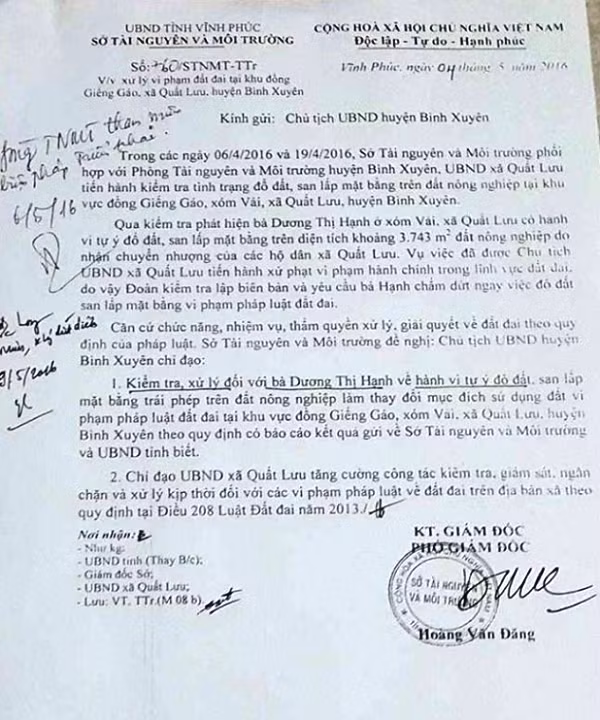 UBND TỈNH VĨNH PHÚC
SỞ TÀI NGUYÊN VÀ MÔI TRƯỜNG
CỘNG HOÀ XÃ HỘI CHỦ NGHĨA VIỆT NAM
Độc lập - Tự do - Hạnh phúc
Số: 760/STNMT-TTr
V/v xử lý vi phạm đất đai tại khu đồng
Giếng Gáo, xã Quất Lưu, huyện Bình Xuyên
Vĩnh Phúc, ngày 04 tháng 5 năm 2016
Kính gửi: Chủ tịch UBND huyện Bình Xuyên
TNMT tham mưu
6/5/16
Trong các ngày 06/4/2016 và 19/4/2016, Sở Tài nguyên và Môi trường phối
hợp với Phòng Tài nguyên và Môi trường huyện Bình Xuyên, UBND xã Quất Lưu
tiến hành kiểm tra tình trạng đổ đất, san lấp mặt bằng trên đất nông nghiệp tại khu
vực đồng Giếng Gáo, xóm Vải, xã Quất Lưu, huyện Bình Xuyên.
Qua kiểm tra phát hiện bà Dương Thị Hạnh ở xóm Vải, xã Quất Lưu có hành
vi tự ý đổ đất, san lấp mặt bằng trên diện tích khoảng 3.743 m² đất nông nghiệp do
nhận chuyển nhượng của các hộ dân xã Quất Lưu. Vụ việc đã được Chủ tịch
UBND xã Quất Lưu tiến hành xử phạt vi phạm hành chính trong lĩnh vực đất đai,
do vậy Đoàn kiểm tra lập biên bản và yêu cầu bà Hạnh chấm dứt ngay việc đổ đất
san lấp mặt bằng vi phạm pháp luật đất đai.
Căn cứ chức năng, nhiệm vụ, thẩm quyền xử lý, giải quyết về đất đai theo quy
định của pháp luật. Sở Tài nguyên và Môi trường đề nghị: Chủ tịch UBND huyện
Bình Xuyên chỉ đạo:
9/5/2016
1. Kiểm tra, xử lý đối với bà Dương Thị Hạnh về hành vi tự ý đổ đất, san lấp
mặt bằng trái phép trên đất nông nghiệp làm thay đổi mục đích sử dụng đất vi
phạm pháp luật đất đai tại khu vực đồng Giếng Gáo, xóm Vải, xã Quất Lưu, huyện
Bình Xuyên theo quy định có báo cáo kết quả gửi về Sở Tài nguyên và Môi trường
và UBND tỉnh biết.
2. Chỉ đạo UBND xã Quất Lưu tăng cường công tác kiểm tra, giám sát, ngăn
chặn và xử lý kịp thời đối với các vi phạm pháp luật về đất đai trên địa bàn xã theo
quy định tại Điều 208 Luật Đất đai năm 2013./.
Nơi nhận:
- Như kg;
- UBND tỉnh (Thay B/c);
- Giám đốc Sở;
- UBND xã Quất Lưu;
- Lưu: VT, TTr.(M 08 b)
KT. GIÁM ĐỐC
PHÓ GIÁM ĐỐC
SỞ TÀI NGUYÊN
VÀ MÔI TRƯỜNG
Hoàng Văn Đăng